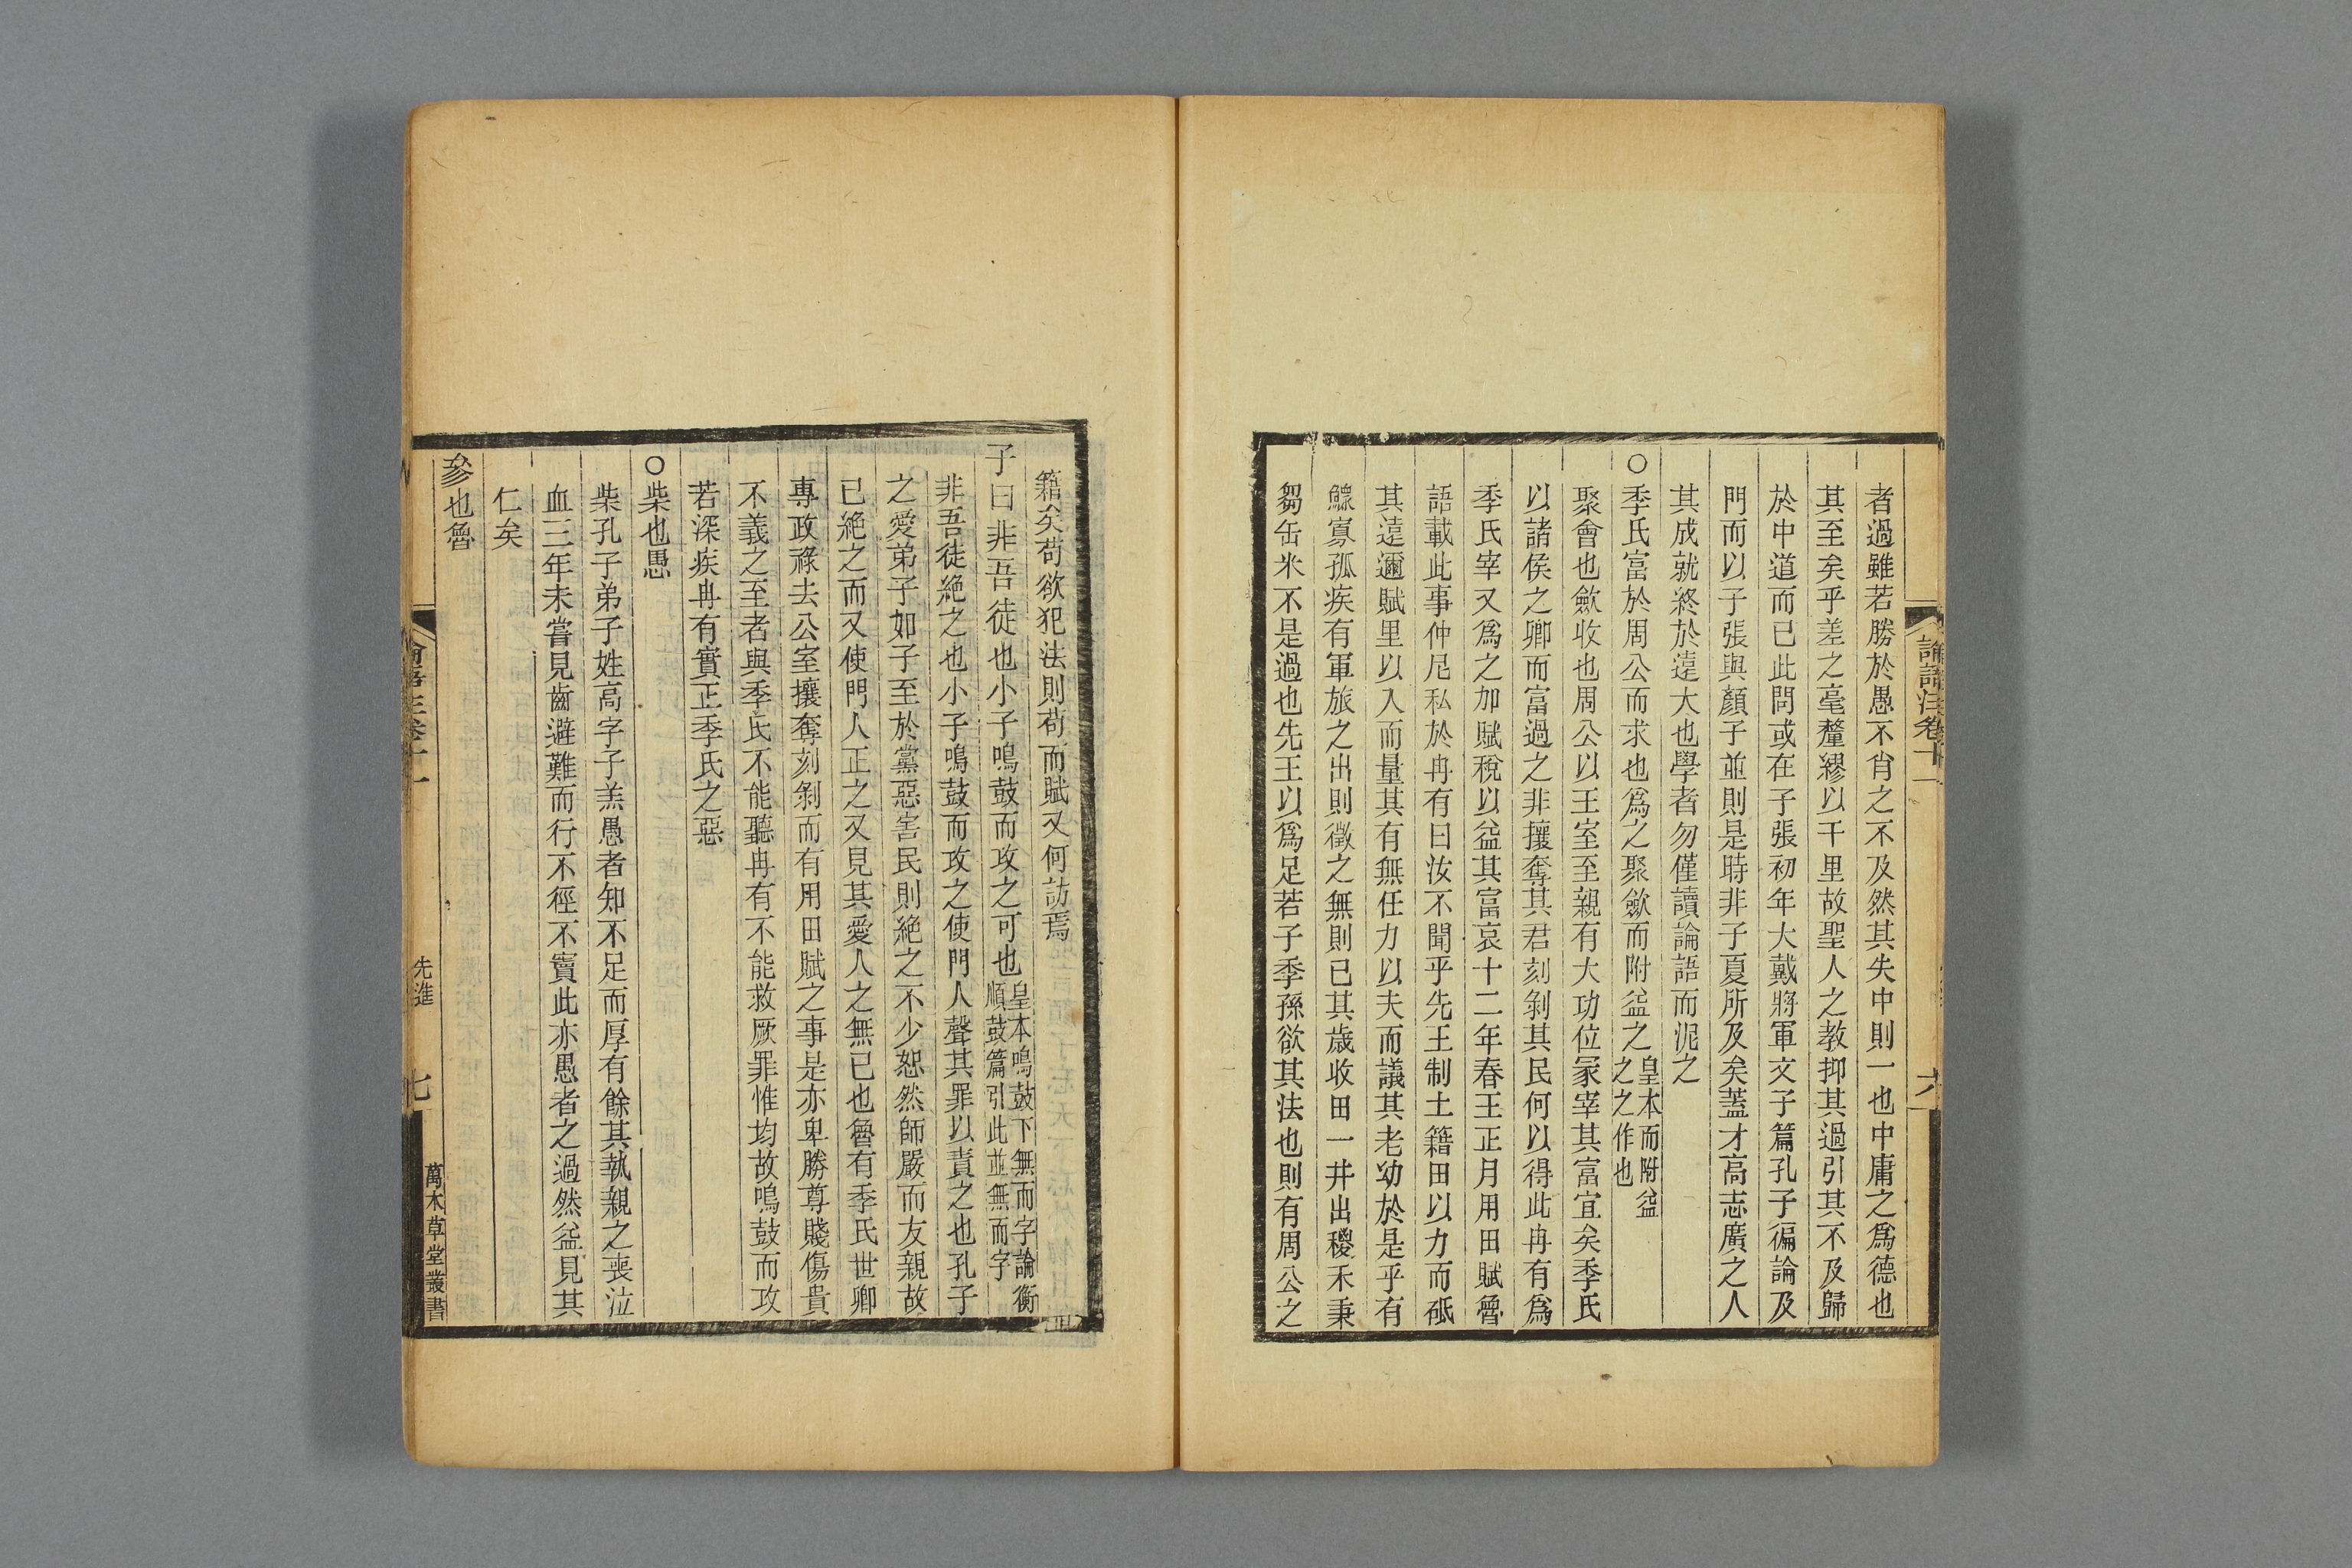 論語注卷十一
者過雖若勝於愚不肖之不及然其失中則一也中庸之爲德也
其至矣乎差之毫釐繆以千里故聖人之教抑其過引其不及歸
於中道而已此問或在子張初年大戴將軍文子篇孔子徧論及
門而以子張與顏子並則是時非子夏所及矣蓋才高志廣之人
其成就終於遠大也學者勿僅讀論語而泥之
○季氏富於周公而求也爲之聚斂而附益之皇本而附益之之作也
聚會也斂收也周公以王室至親有大功位冢宰其富宜矣季氏
以諸侯之卿而富過之非攘奪其君刻剝其民何以得此冉有爲
季氏宰又爲之加賦稅以益其富哀十二年春王正月用田賦魯
語載此事仲尼私於冉有曰汝不聞乎先王制土籍田以力而砥
其遠邇賦里以入而量其有無任力以夫而議其老幼於是乎有
鰥寡孤疾有軍旅之出則徵之無則已其歲收田一井出稷禾秉
芻缶米不是過也先王以爲足若子季孫欲其法也則有周公之
籍矣苟欲犯法則苟而賦又何訪焉
子曰非吾徒也小子鳴鼓而攻之可也皇本鳴鼓下無而字論衡順鼓篇引此並無而字
非吾徒絶之也小子鳴鼓而攻之使門人聲其罪以責之也孔子
之愛弟子如子至於黨惡害民則絶之不少恕然師嚴而友親故
已絶之而又使門人正之又見其愛人之無已也魯有季氏世卿
專政祿去公室攘奪刻剝而有用田賦之事是亦卑勝尊賤傷貴
不義之至者與季氏不能聽冉有不能救厥罪惟均故鳴鼓而攻
若深疾冉有實正季氏之惡
○柴也愚
柴孔子弟子姓高字子羔愚者知不足而厚有餘其執親之喪泣
血三年未嘗見齒避難而行不徑不竇此亦愚者之過然益見其
仁矣
參也魯
先進
七
萬木草堂叢書